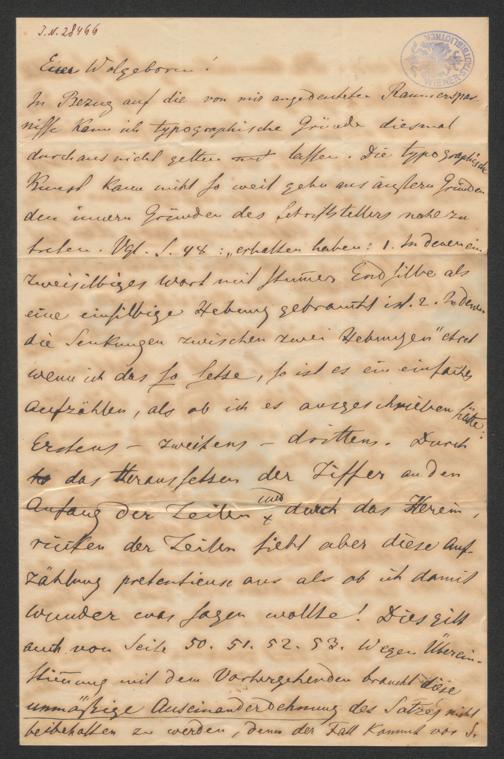 I.N. 28466
WIENER STADTBIBLIOTHEK
Euer Wolgeboren!
In Bezug auf die von mir angedeuteten Raumerspar-
nisse kann ich typographische Gründe diesmal
durchaus nicht gelten lassen. Die typographische
Kunst kann nicht so weit gehn aus äußern Gründen
den innern Gründen des Schriftstellers nahe zu
treten. Vgl. S. 48: „erhalten haben: 1. In denen ein
zweisilbiges wort mit stummer Endsilbe als
eine einsilbige Hebung gebraucht ist. 2. In denen
die Senkungen zwischen zwei Hebungen" etc.
wenn ich das so setze, so ist es ein einfaches
Aufzählen, als ob ich es ausgeschrieben hätte:
Erstens – zweitens – drittens. Durch
das Heraussetzen der Ziffer an den
Anfang der Zeilen und durch das Herein-
rücken der Zeilen sieht aber diese Auf-
zählung pretentieuse aus als ob ich damit
wunder was sagen wollte! Dies gilt
auch von Seite 50. 51. 52. 53. Wegen Überein-
stimmung mit dem Vorhergehenden braucht diese
unmäßige Auseinanderdehnung des Satzes nicht
beibehalten zu werden, denn der Fall kommt vor S.